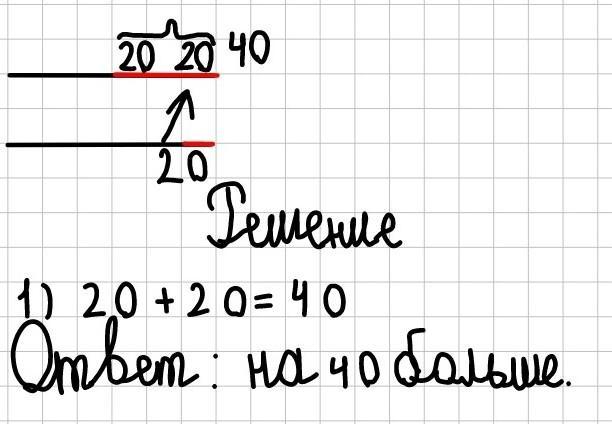 20 20 40
20
Решение
1) 20 + 20 = 40
Ответ: на 40 больше.